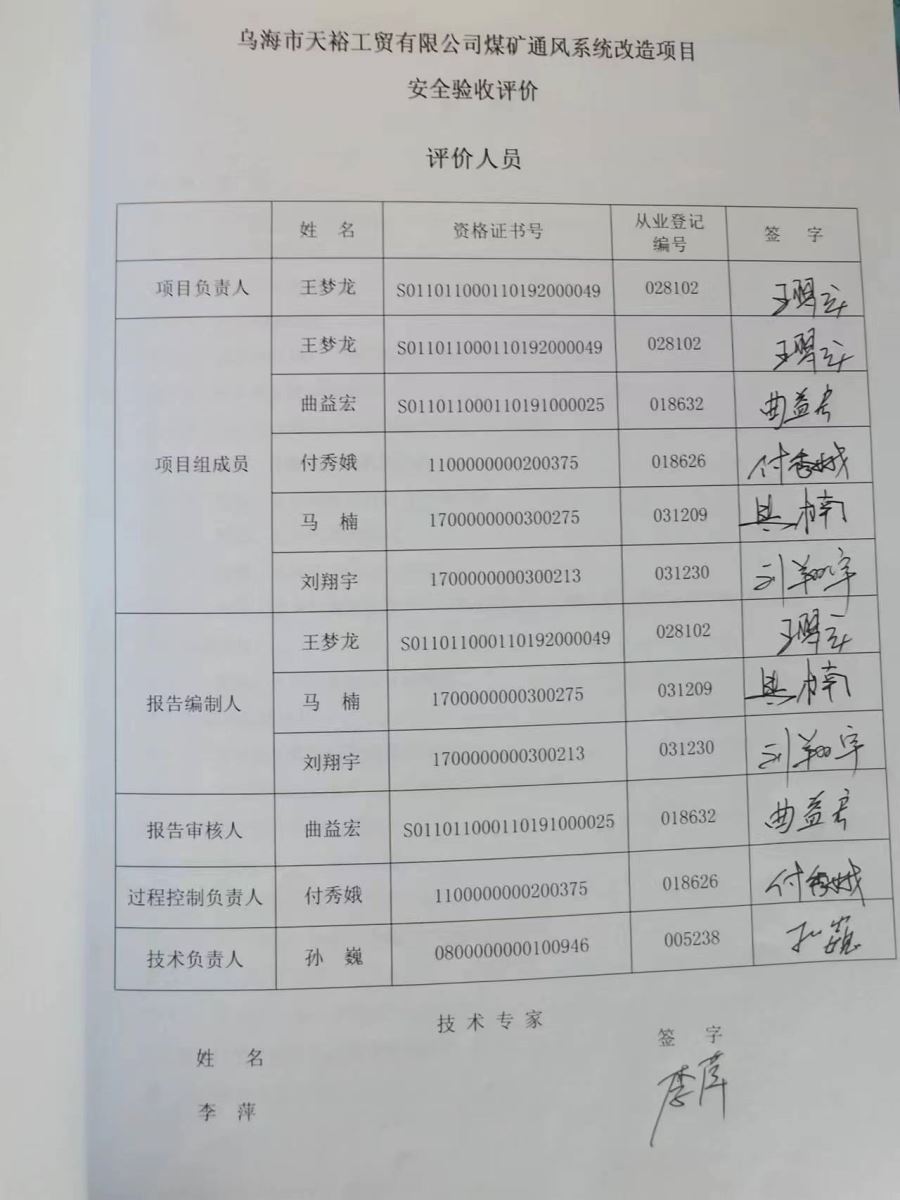 乌海市天裕工贸有限公司煤矿通风系统改造项目
安全验收评价
评价人员
姓 名 资格证书号 从业登记编号 签 字
项目负责人 王梦龙 S011011000110192000049 028102 王梦龙
项目组成员 王梦龙 S011011000110192000049 028102 王梦龙
曲益宏 S011011000110191000025 018632 曲益宏
付秀娥 1100000000200375 018626 付秀娥
马 楠 1700000000300275 031209 马楠
刘翔宇 1700000000300213 031230 刘翔宇
报告编制人 王梦龙 S011011000110192000049 028102 王梦龙
马 楠 1700000000300275 031209 马楠
刘翔宇 1700000000300213 031230 刘翔宇
报告审核人 曲益宏 S011011000110191000025 018632 曲益宏
过程控制负责人 付秀娥 1100000000200375 018626 付秀娥
技术负责人 孙 巍 0800000000100946 005238 孙巍
技术专家
姓 名 签 字
李 萍 李萍